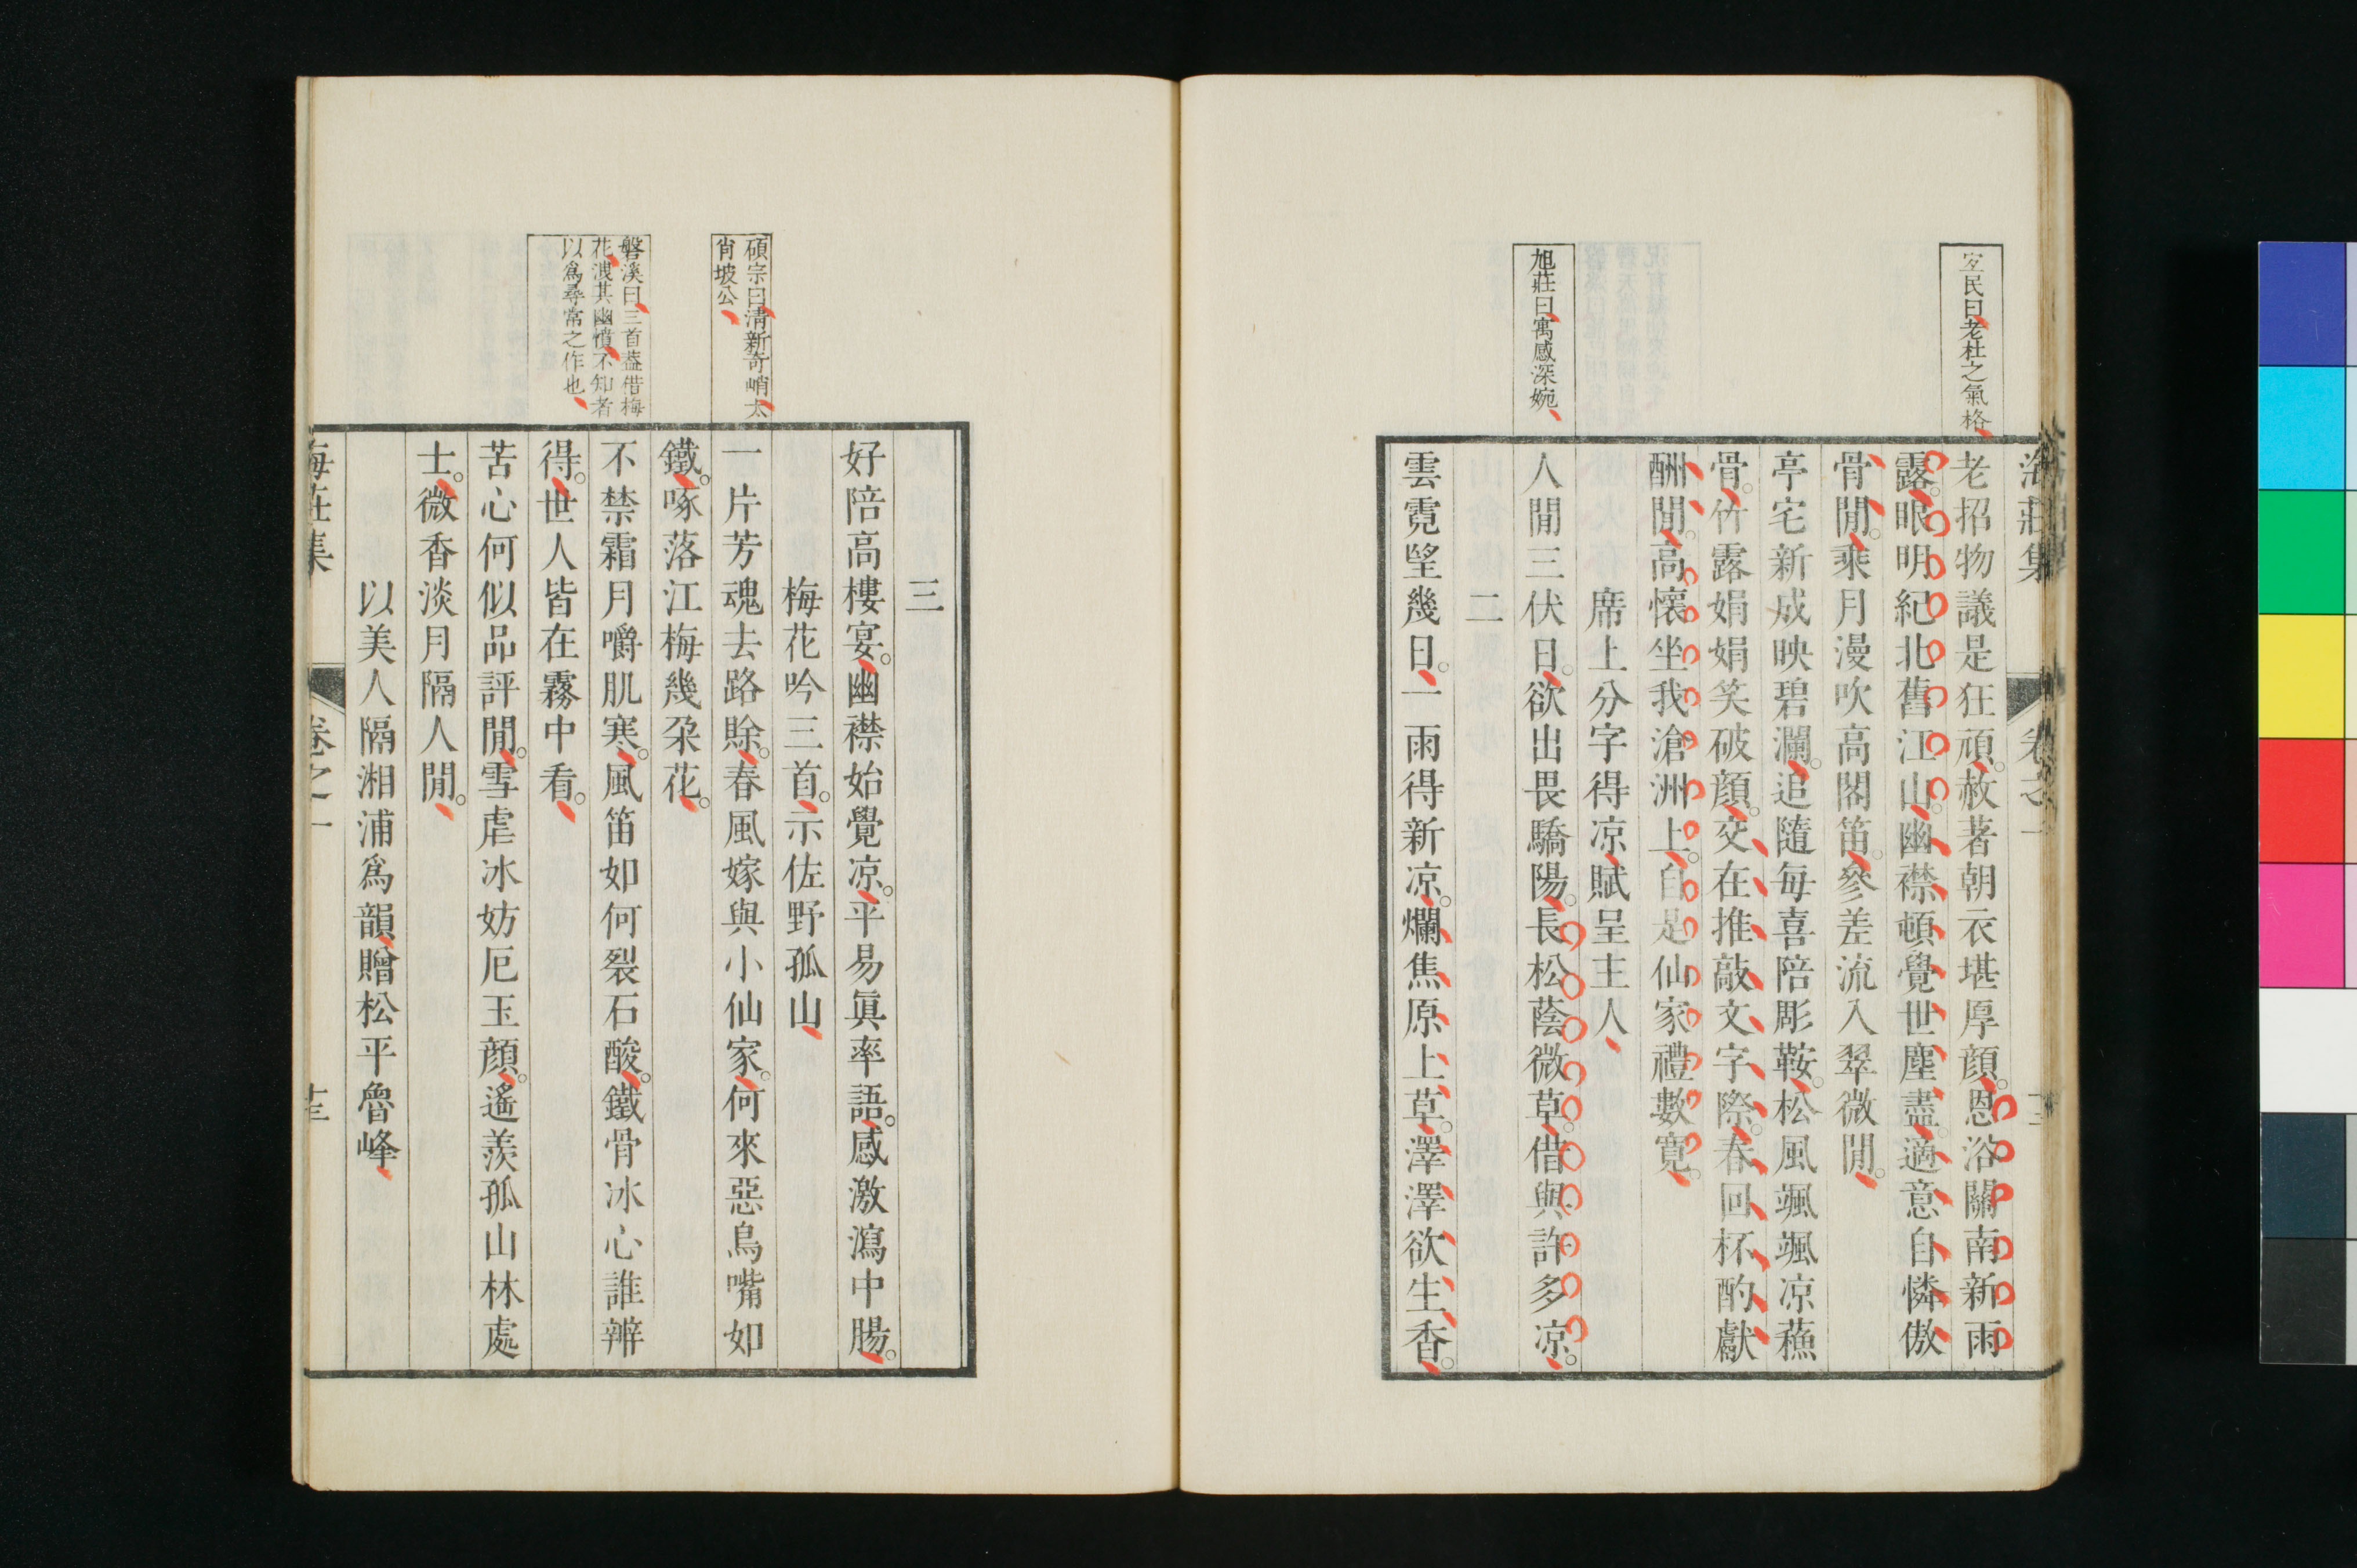 海莊集 卷之一
宏民曰老杜之氣格
老招物議是狂頑。赦著朝衣堪厚顔。恩浴關南新雨
露。眼明紀北舊江山。幽襟頓覺世塵盡。適意自憐傲
骨閒。乘月漫吹高閣笛。參差流入翠微閒。
亭宅新成映碧瀾。追隨每喜陪彫鞍。松風颯颯凉蘓
骨。竹露娟娟笑破顔。交在推敲文字際。春回杯酌獻
酬閒。高懷坐我滄洲上。自是仙家禮數寛。
席上分字得凉賦呈主人
旭莊曰寓感深婉
人閒三伏日。欲出畏驕陽。長松蔭微草。借與許多凉。
二
雲霓朢幾日。一雨得新凉。爛焦原上草。澤澤欲生香。
三
好陪高樓宴。幽襟始覺凉。平易眞率語。感激瀉中腸。
梅花吟三首。示佐野孤山
碩宗曰清新奇峭太
肖坡公
一片芳魂去路賖。春風嫁與小仙家。何來惡鳥嘴如
鐵。啄落江梅幾朶花。
磐溪曰三首葢借梅
花洩其幽憤不知者
以爲尋常之作也
不禁霜月嚼肌寒。風笛如何裂石酸。鐵骨冰心誰辨
得。世人皆在霧中看。
苦心何似品評閒。雪虐冰妨厄玉顔。遙羨孤山林處
士。微香淡月隔人閒。
以美人隔湘浦爲韻贈松平魯峰
海莊集 卷之一 十三